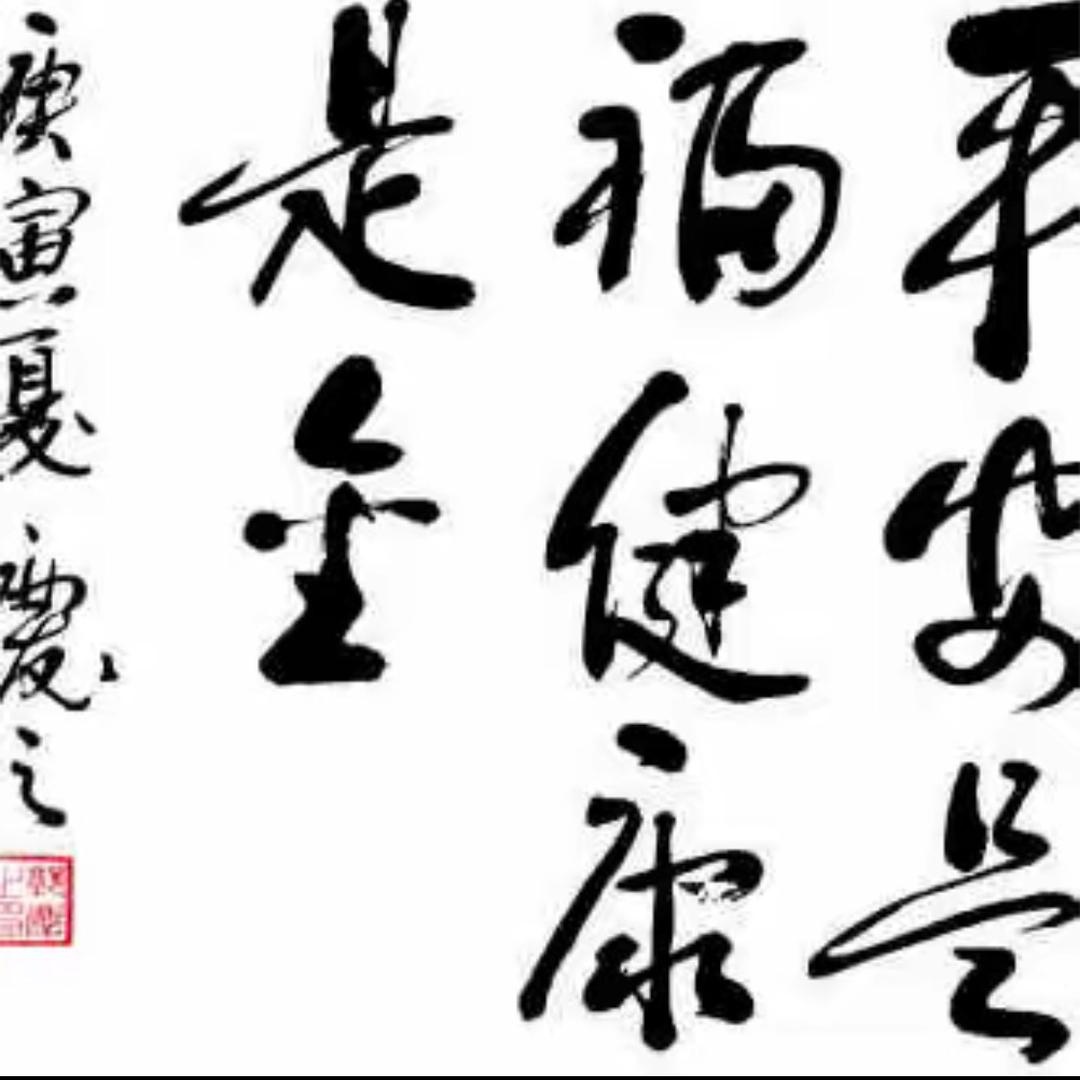 平安是
福健康
是金
庚寅夏 庆之